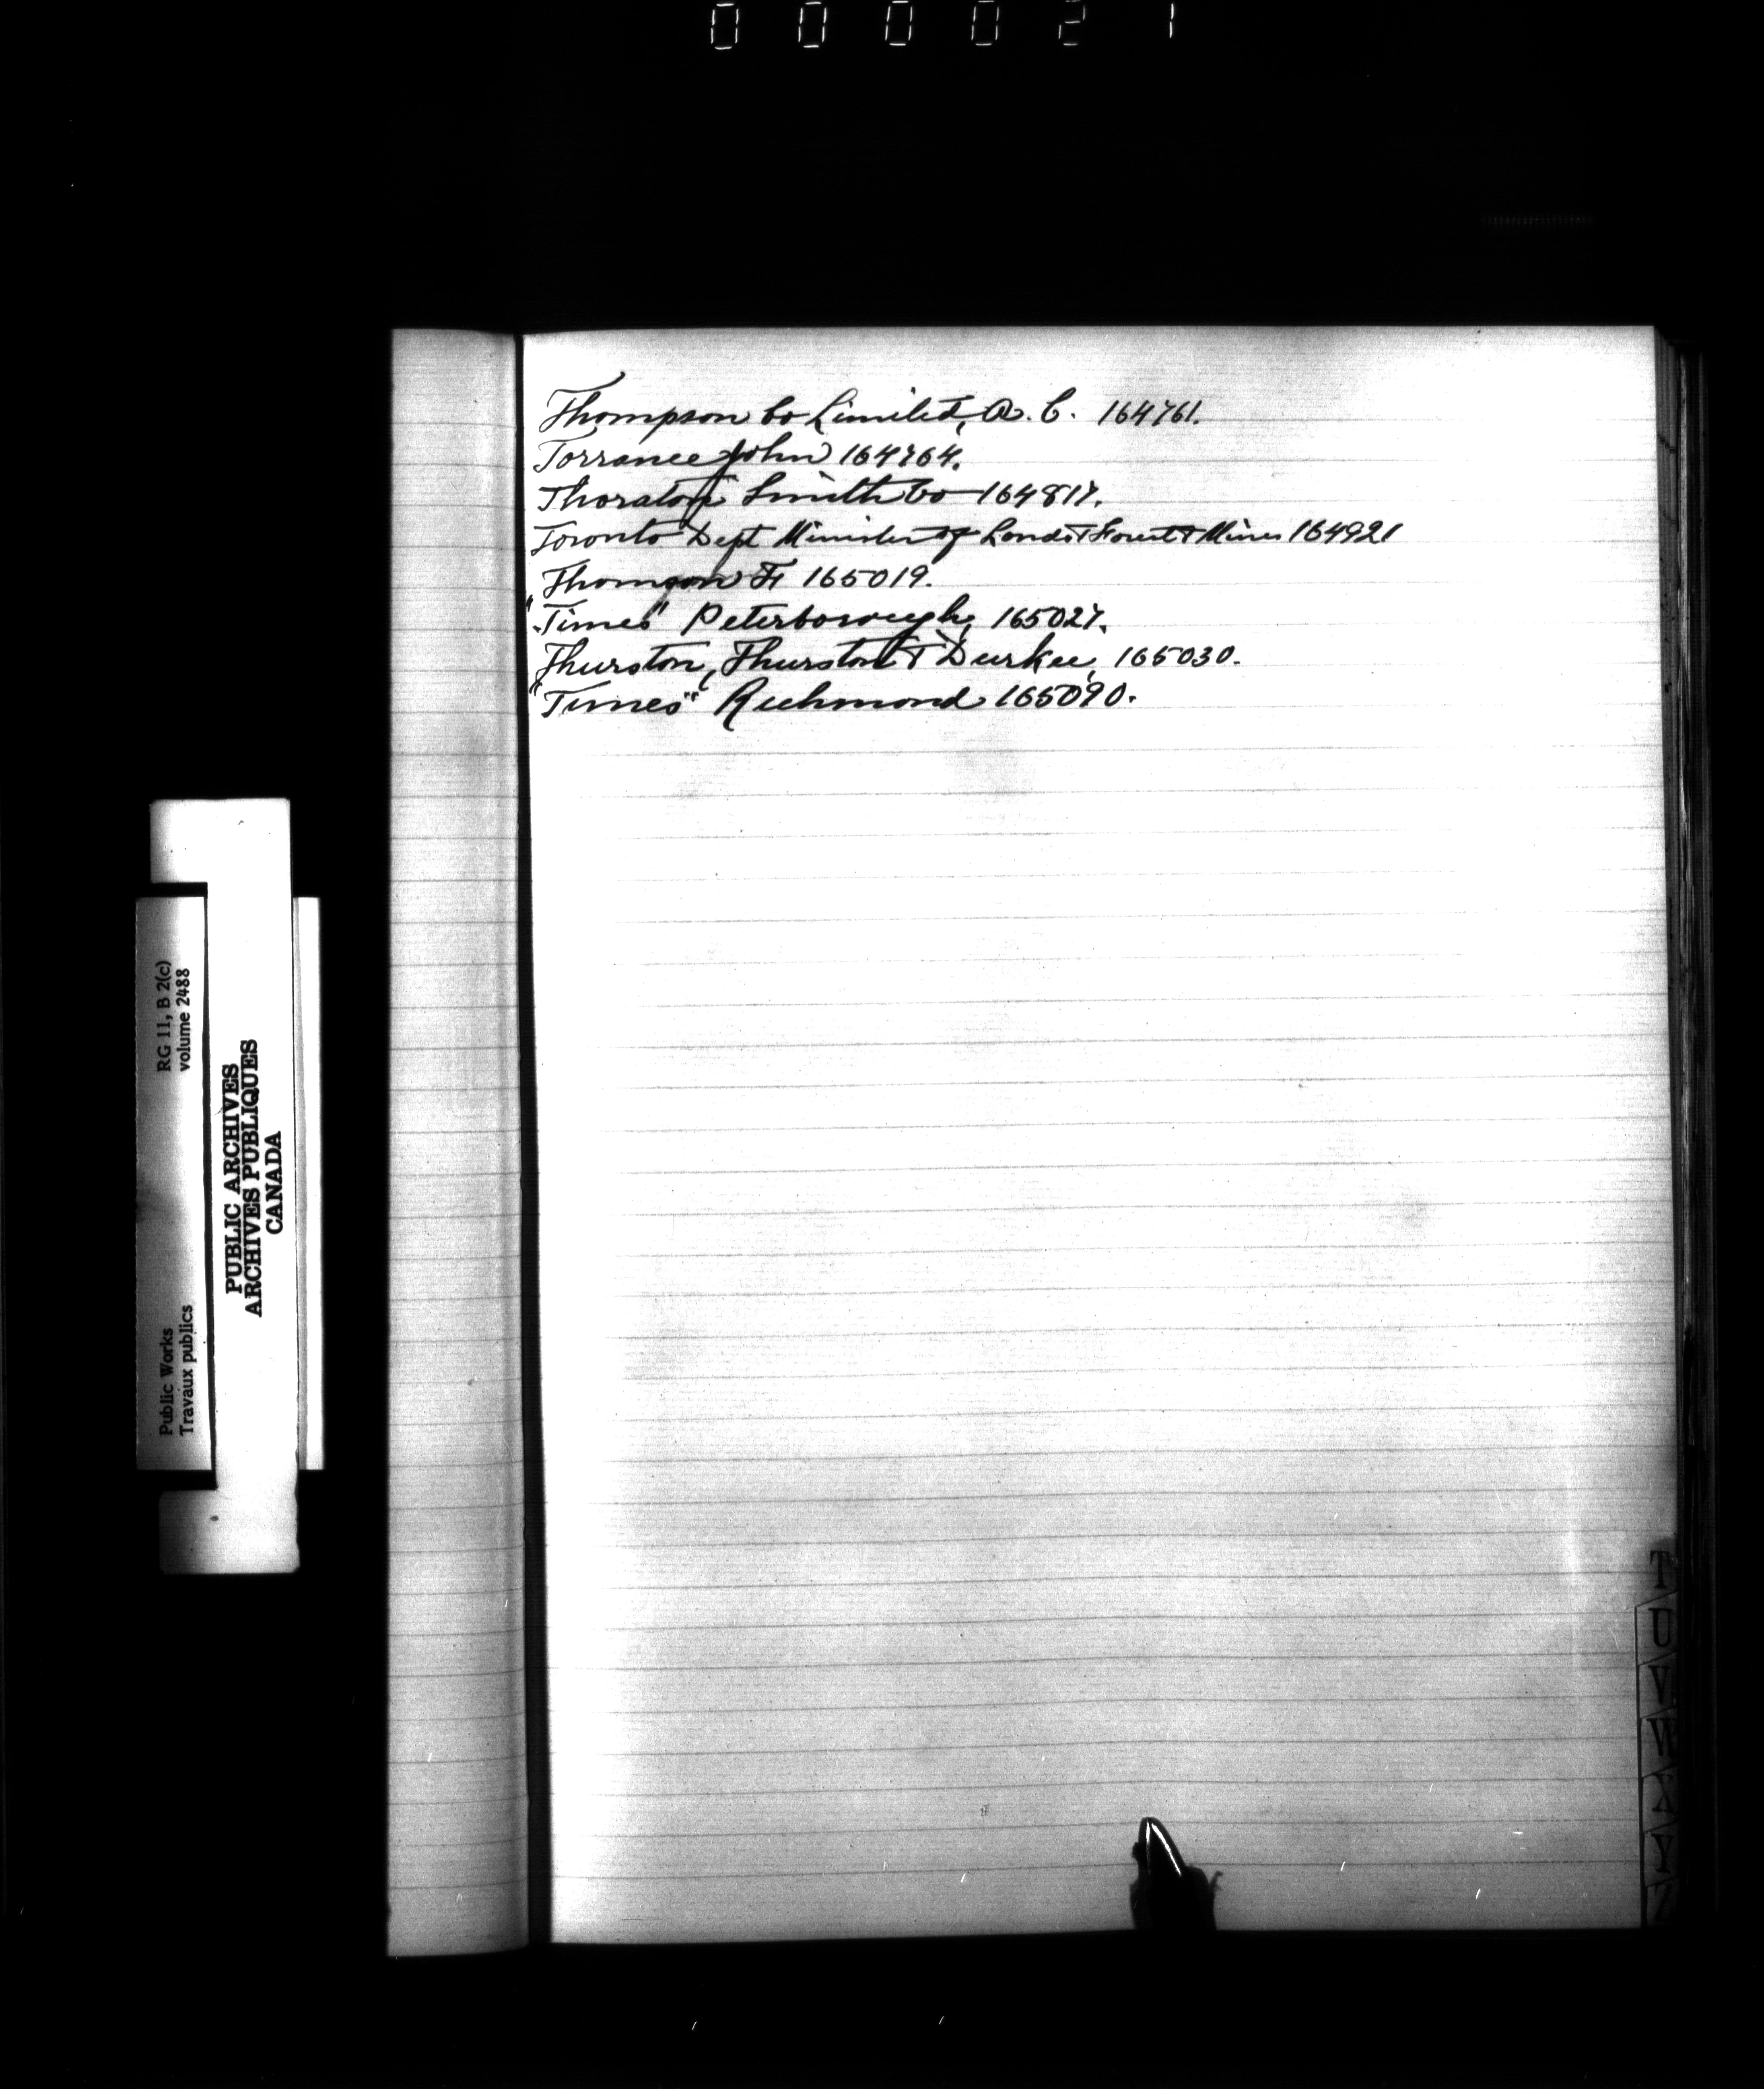 000021
Thompson Co Limited, A. C. 164761.
Torrance John 164764.
Thornton Smith Co 164817.
Toronto Dept Minister of Lands & Forest & Mines 164921
Thomson F 165019.
"Times" Peterborough, 165027.
Thurston, Thurston & Durkee, 165030.
"Times" Richmond 165090.
Public Works RG 11, B 2(c)
Travaux publics volume 2488
PUBLIC ARCHIVES
ARCHIVES PUBLIQUES
CANADA
T
U
V
W
X
Y
Z